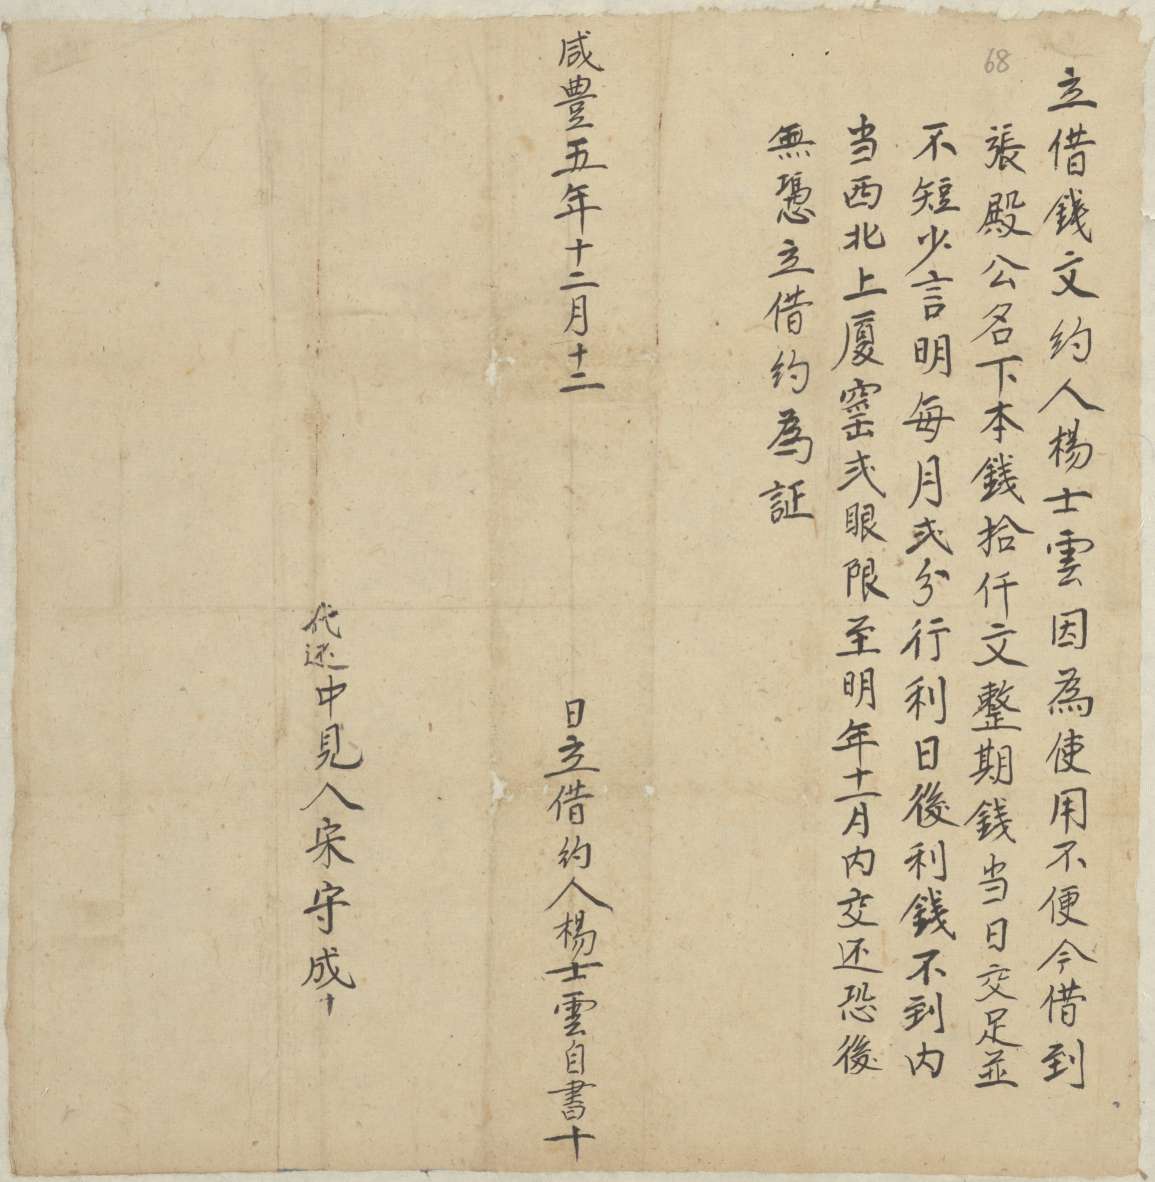 68
立借錢文約人楊士雲因為使用不便今借到
張殿公名下本錢拾仟文整期錢当日交足並
不短少言明每月弍分行利日後利錢不到内
当西北上厦窰弍眼限至明年十一月内交还恐後
無憑立借約為証
咸豊五年十二月十二日立借約人楊士雲自書十
代还中見人宋守成十